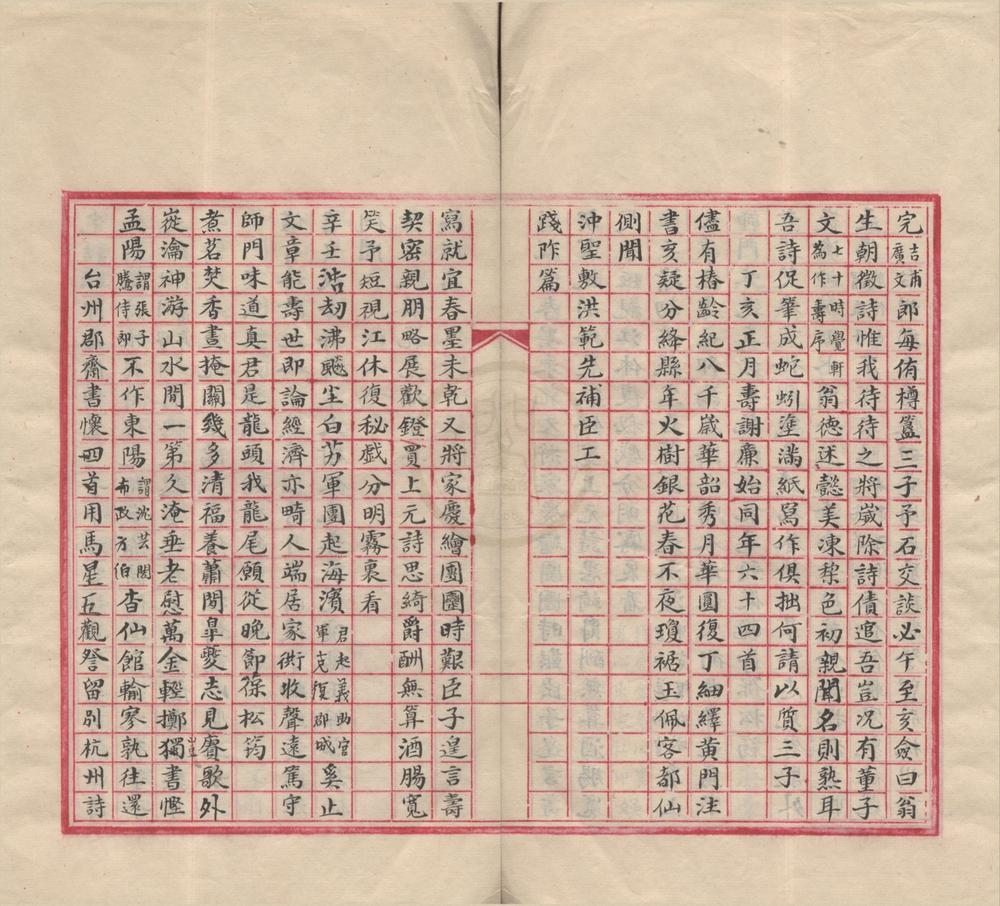 完吉甫廣文郎每侑樽簋三子予石交談必午至亥僉曰翁
生朝徵詩惟我待待之將歲除詩債逭吾豈况有董子
文七十時覺軒為作壽序翁德述懿美凍棃色初親聞名則熟耳
吾詩促筆成蛇蚓塗滿紙寫作俱拙何請以質三子
丁亥正月壽謝廉始同年六十四首
儘有椿齡紀八千歲華韶秀月華圓復丁細繹黃門注
書亥疑分絳縣年火樹銀花春不夜瓊裾玉佩客都仙
側聞
沖聖敷洪範先補臣工
踐阼篇
寫就宜春墨未乾又將家慶繪團圞時艱臣子遑言壽
契密親朋略展歡鐙買上元詩思綺爵酬無算酒腸寬
笑予短視江休復秘戲分明霧裏看
辛壬浩劫沸颷尘白艻軍團起海濱君起義助官軍克復郡城奚止
文章能壽世即論經濟亦畸人端居家衖收聲遠篤守
師門味道真君是龍頭我龍尾願從晚節葆松筠
煮茗焚香晝掩關幾多清福養蕭閒臯夔志見賡歌外
嵸瀹神游山水間一第久淹垂老慰萬金輕擲獨書慳
孟陽謂張子騰侍郎不作東陽謂沈芸閣布政方伯杳仙館輸寥孰往還
台州郡齋書懷四首用馬星五觀詧留別杭州詩